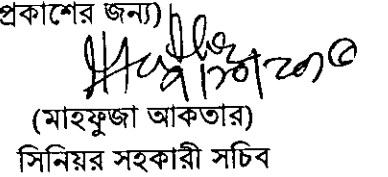 প্রকাশের জন্য)
(মাহফুজা আকতার)
সিনিয়র সহকারী সচিব